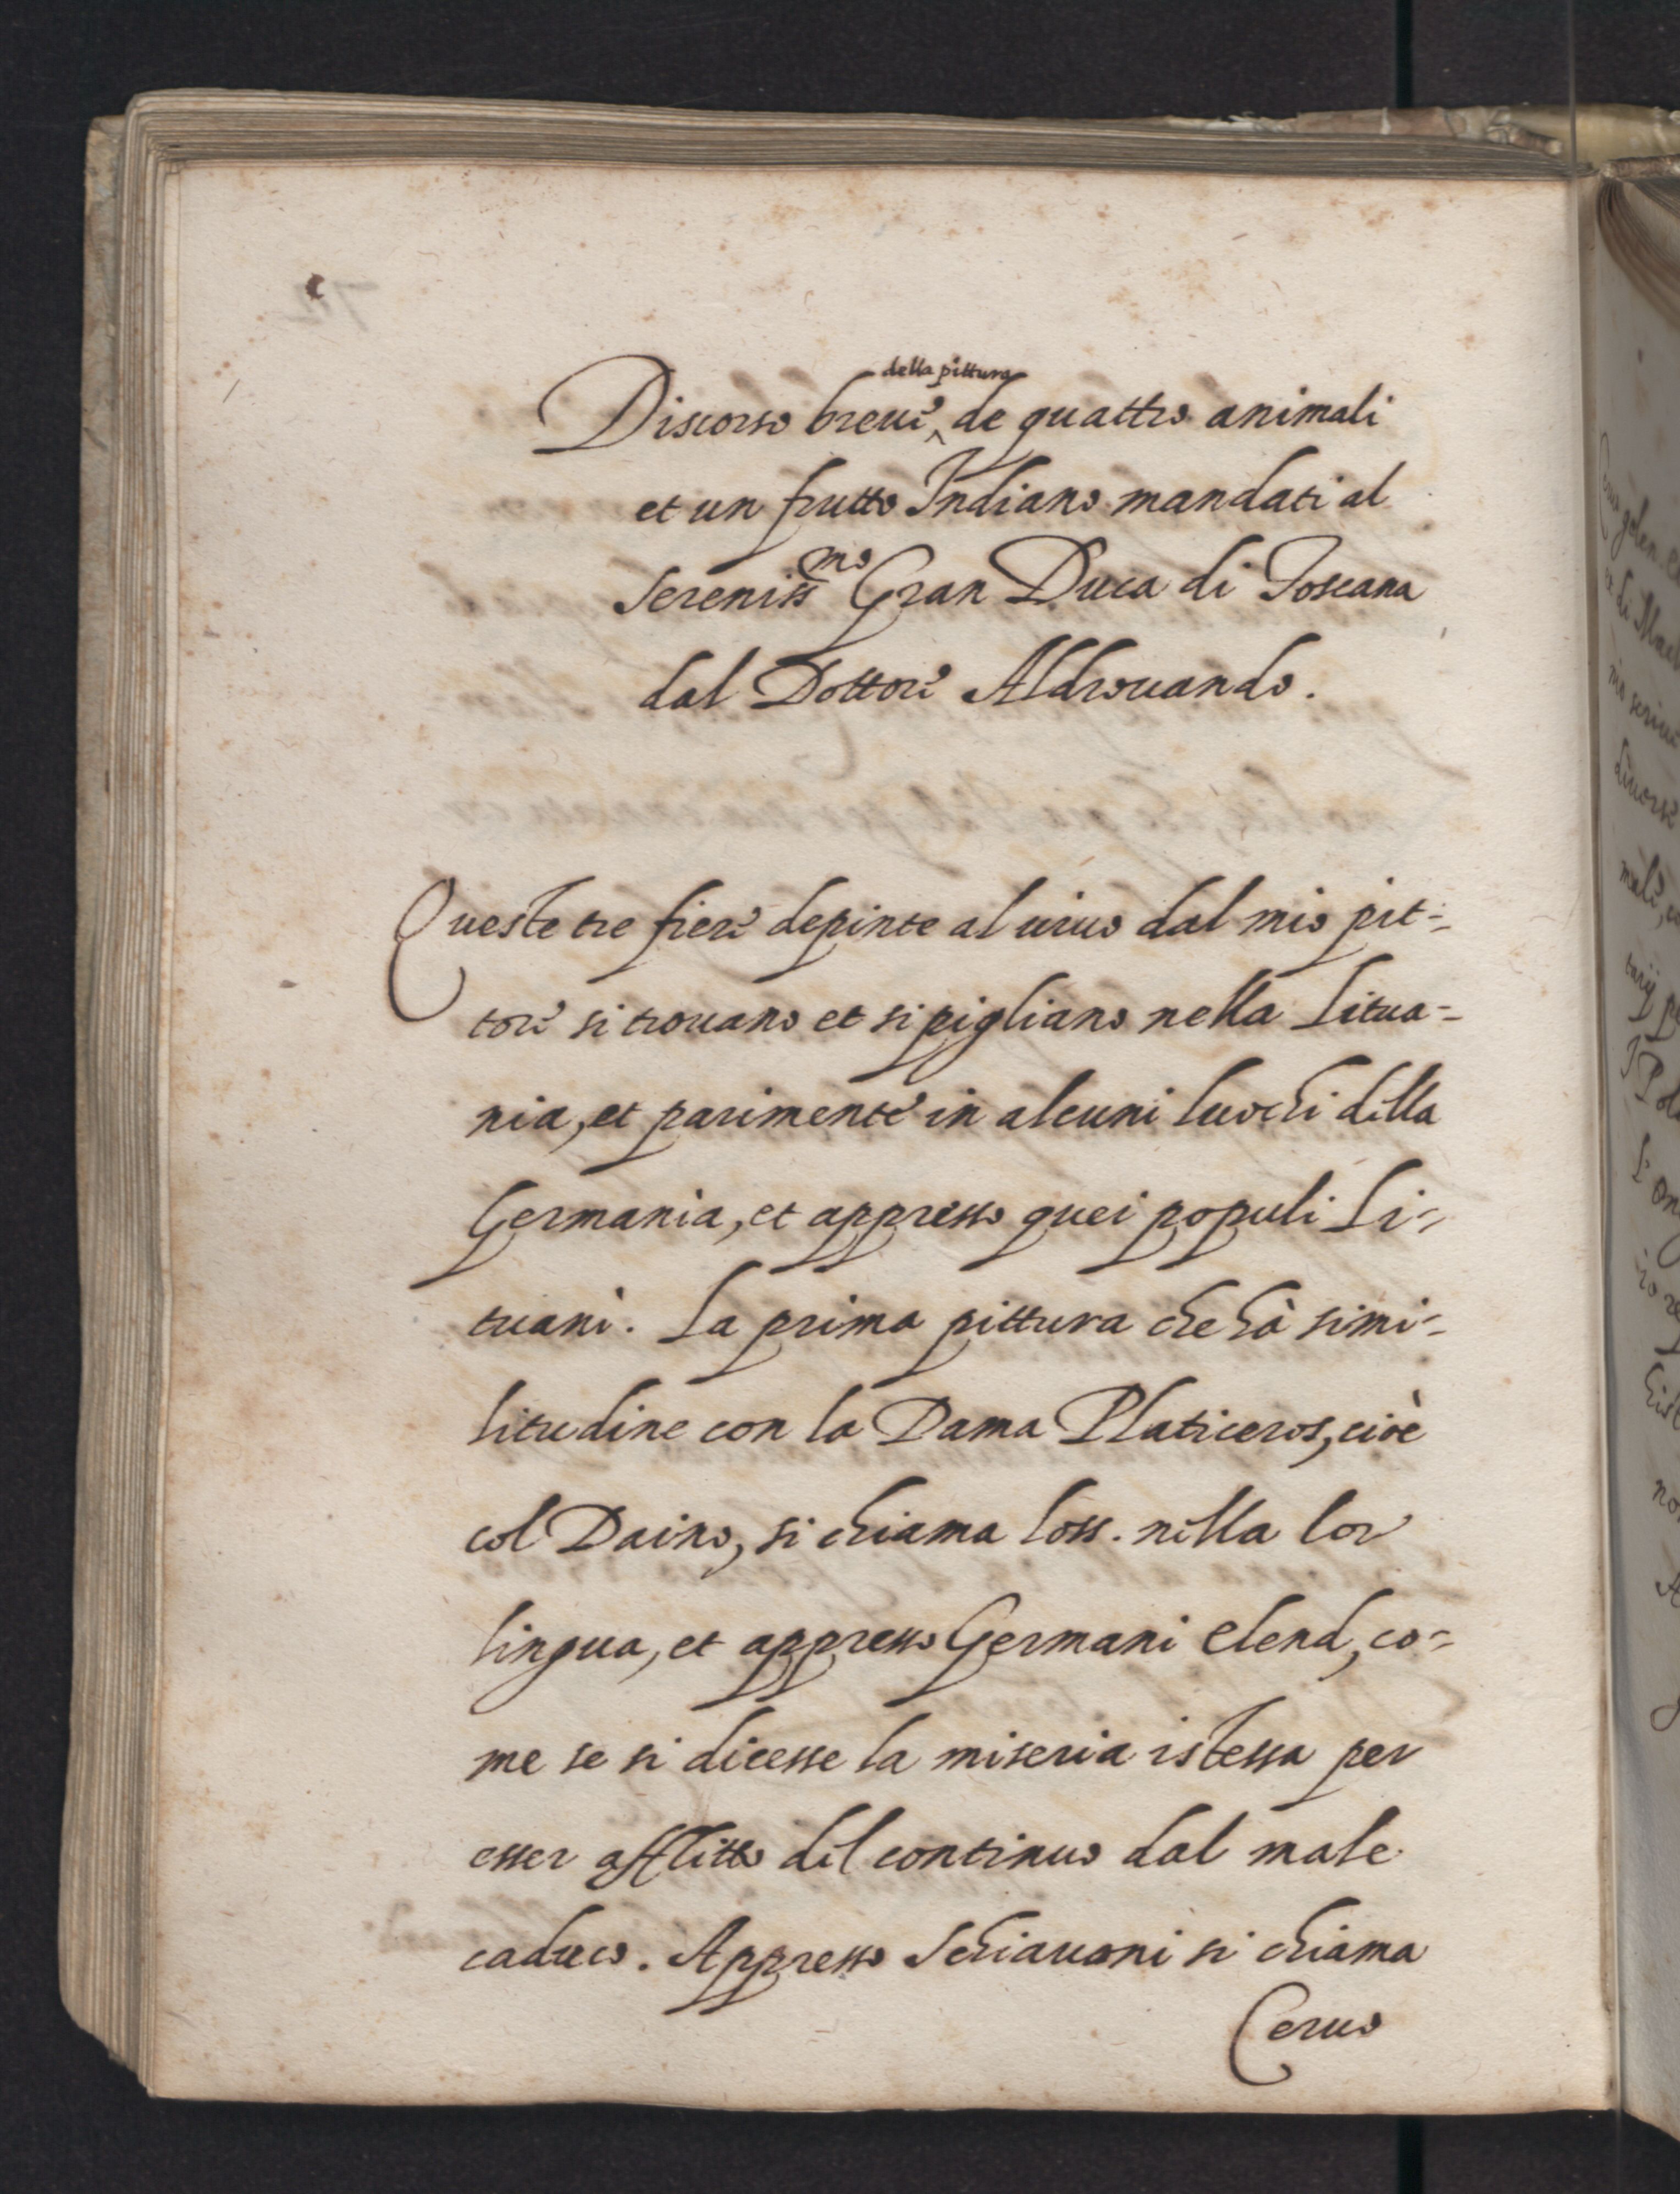 della pittura
Discorso breue de quattro animali
et un frutto Indiano mandati al
Sereniss.mo Gran Duca di Toscana
dal Dottore Aldrouando.
Queste tre fiere depinte al uiuo dal mio pit=
tore si trouano et si pigliano nella Litua=
nia, et parimente in alcuni luochi della
Germania, et appresso quei populi Li=
tuani. La prima pittura che hà simi=
litudine con la Dama Platiceros, cioè
col Daino, si chiama loss. nella lor
lingua, et appresso Germani elend, co=
me se si dicesse la miseria istessa per
esser afflitto del continuo dal male
caduco. Appresso Schiauoni si chiama
Ceruo